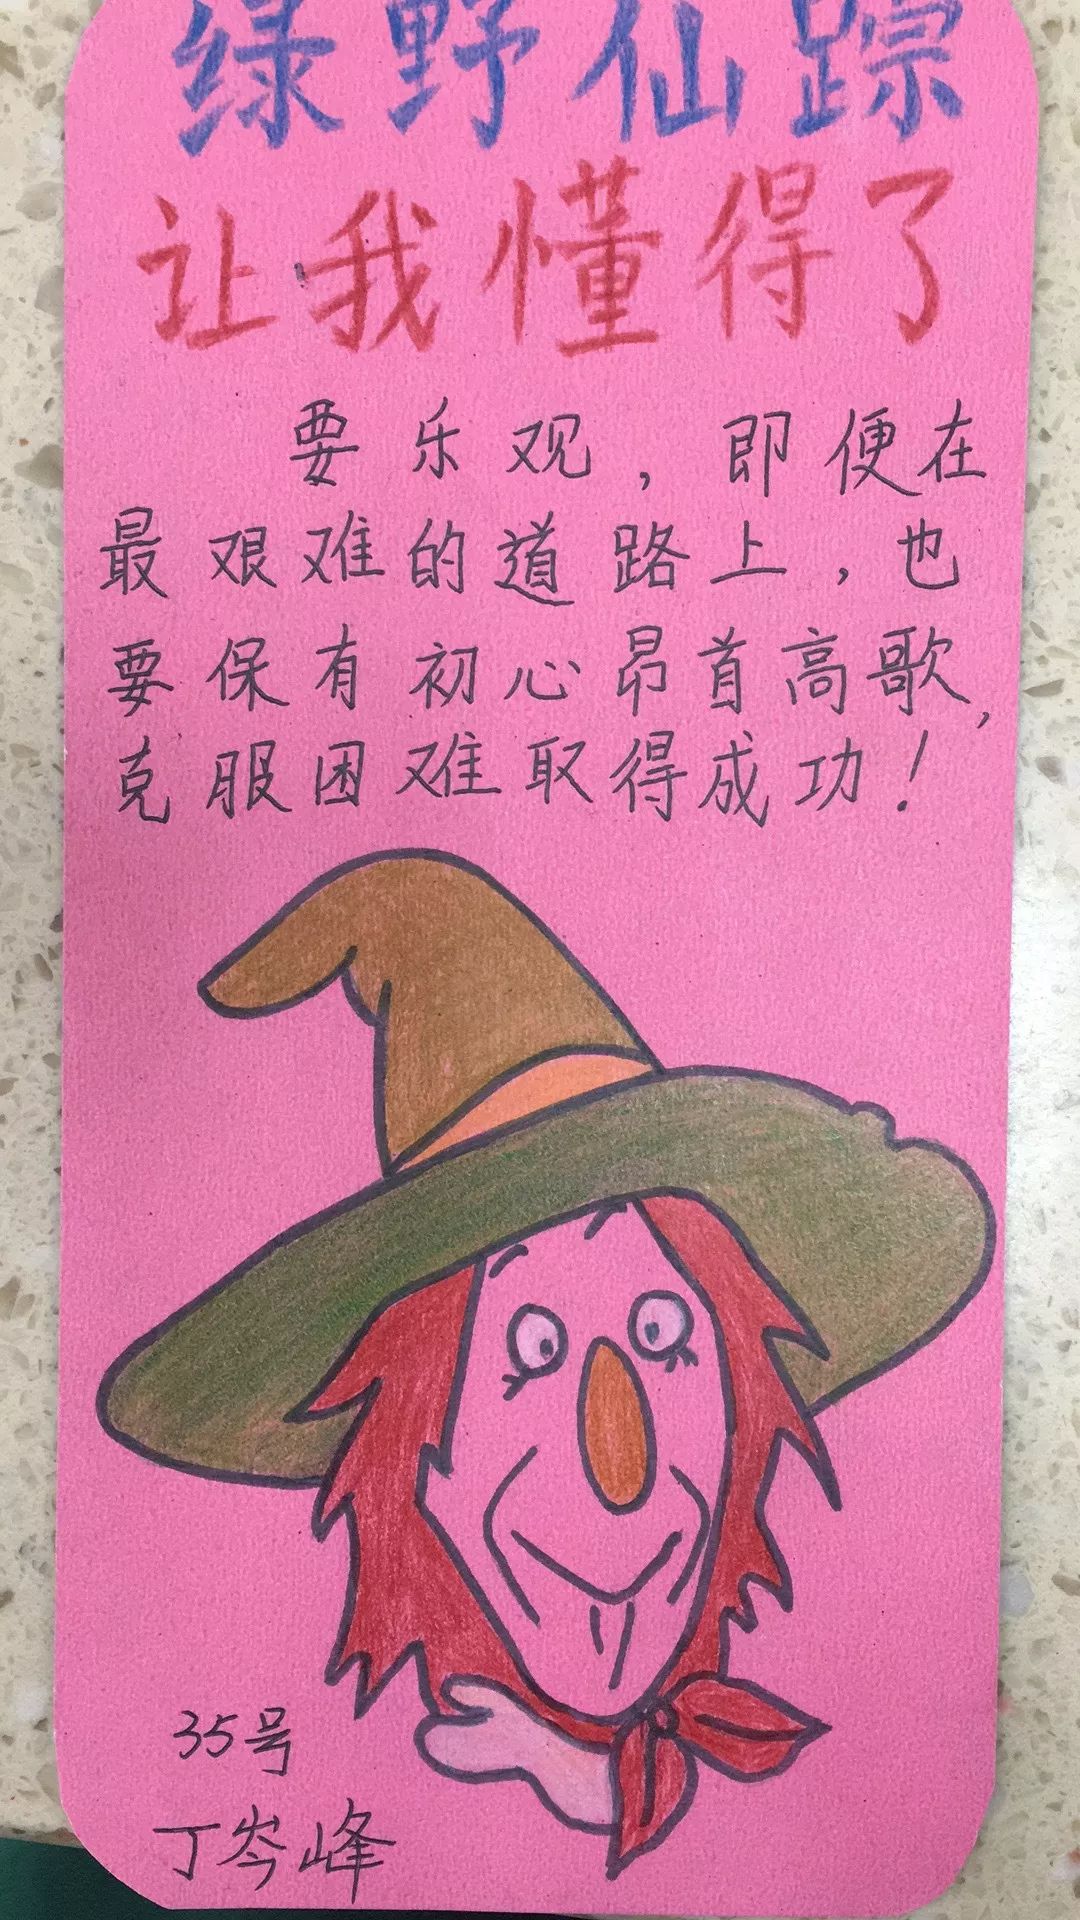 绿野仙踪
让我懂得了
要乐观，即便在
最艰难的道路上，也
要保有初心昂首高歌，
克服困难取得成功！
35号
丁岑峰